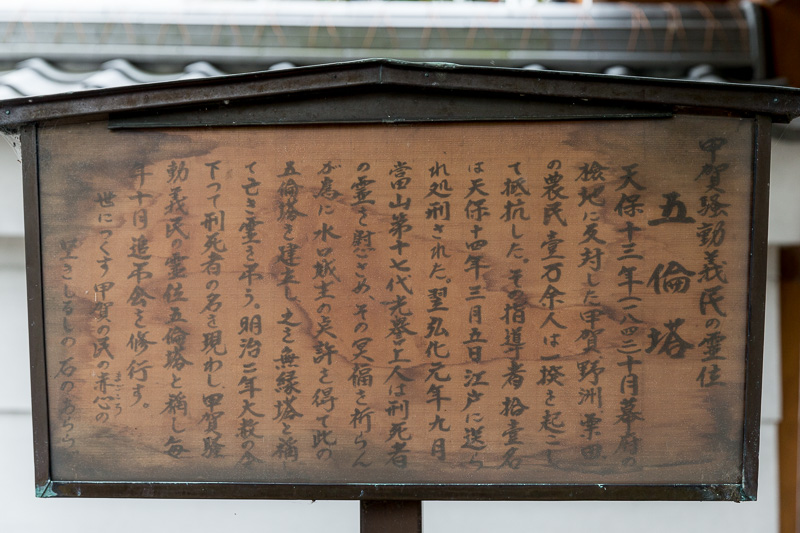 甲賀騒動義民の霊位
五倫塔
天保十三年(一八四二)十月幕府の
検地に反対した甲賀野洲栗田
の農民壹万余人は一揆を起こし
て抵抗した。その指導者拾壹名
は天保十四年三月五日江戸に送ら
れ処刑された。翌弘化元年九月
當山第十七代光譽上人は刑死者
の霊を慰さめ、その冥福を祈らん
が為に水口城主の免許を得て此の
五倫塔を建立し之を無縁塔と稱し
て亡き霊を弔う。明治二年大赦の令
下って刑死者の名を現わし甲賀騒
動義民の霊位五倫塔と稱し毎
年十月追弔会を修行す。
世につくす甲賀の民の赤心の
まごころ
里きしるしの石の